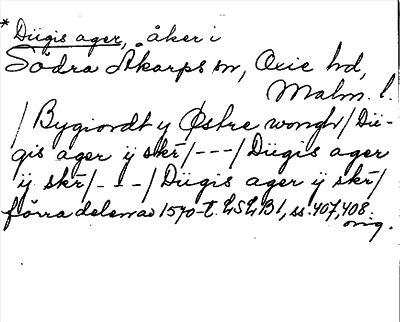 * Diigis ager, åker i
Södra Åkarps sn, Oxie hd,
Malm. l.
/ Bygiordt y Østre wongh / Dii-
gis ager ÿ skr / - - - / Diigis ager
ÿ skr / - - - / Diigis ager ÿ skr /
förra delen av 1570-t. LSLB 1, ss. 407, 408
orig.